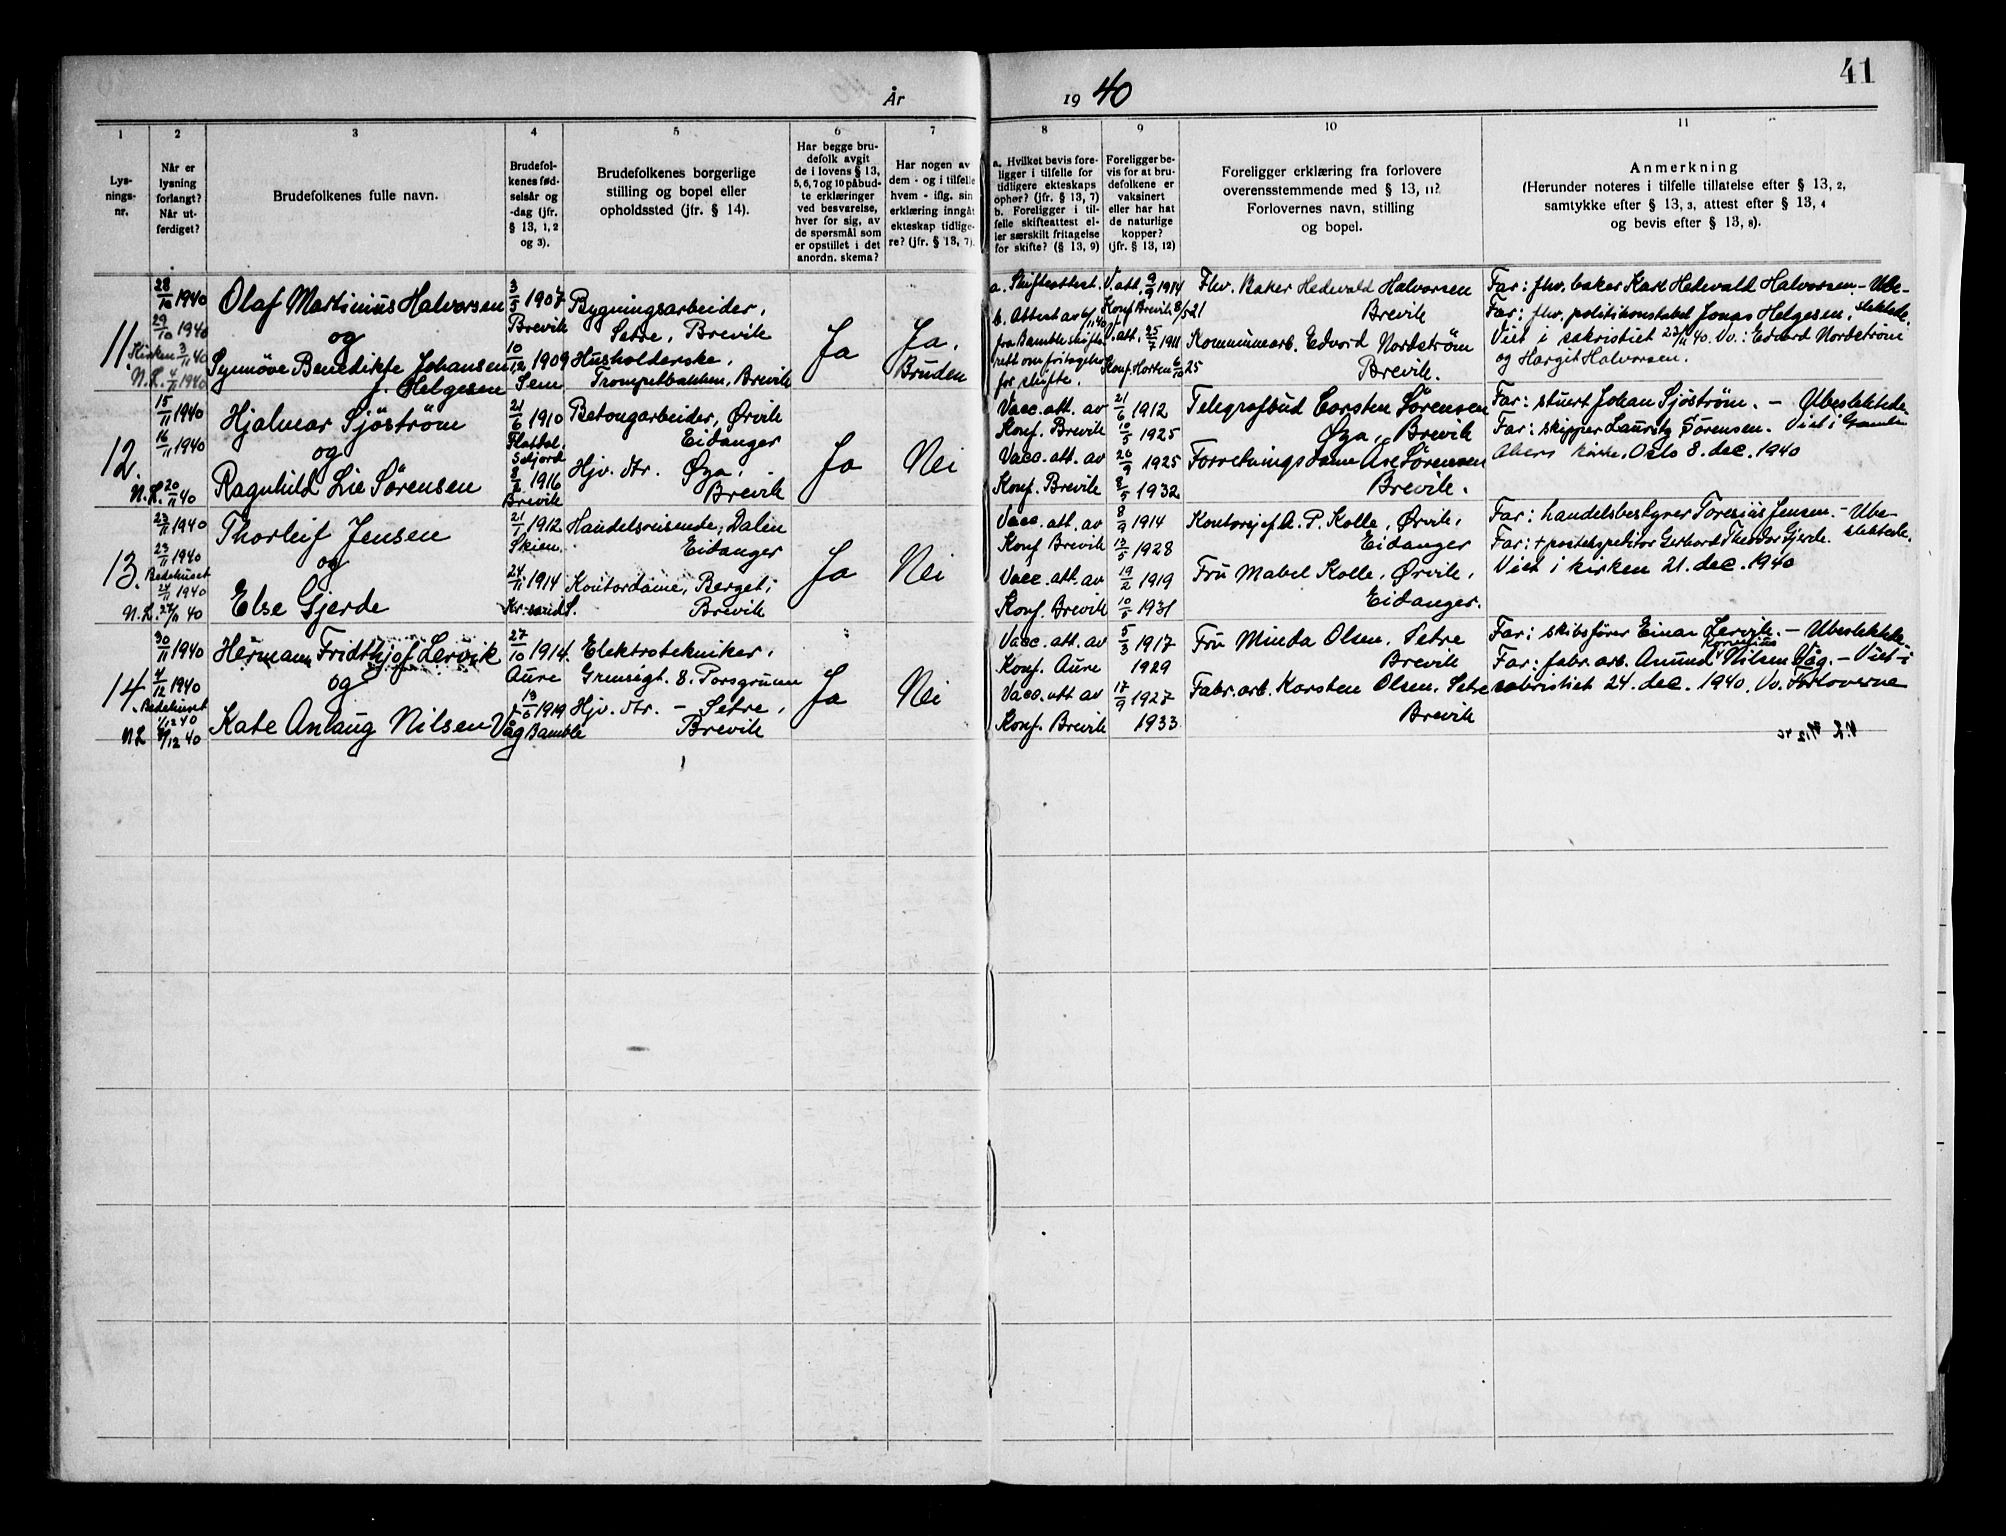 41
År
19 40
1
2
3
4
5
6
7
8
9
10
11
Lys-
nings-
nr.
Når er
lysning
forlangt?
Når ut-
ferdiget?
Brudefolkenes fulle navn.
Brudefol-
kenes fød-
selsår og
-dag (jfr.
§ 13, 1, 2
og 3).
Brudefolkenes borgerlige
stilling og bopel eller
opholdssted (jfr. § 14).
Har begge bru-
defolk avgitt
de i lovens § 13,
5, 6, 7 og 10 påbud-
te erklæringer
ved besvarelse,
hver for sig, av
de spørsmål som
er opstillet i det
anordn. skema?
Har nogen av
dem - og i tilfelle
hvem - iflg. sin
erklæring inngått
ekteskap tidlige-
re? (jfr. § 13, 7).
a. Hvilket bevis fore-
ligger i tilfelle for
tidligere ekteskaps
ophør? (jfr. § 13, 7)
b. Foreligger i til-
felle skifteattest el-
ler særskilt fritagelse
for skifte? (§ 13, 9)
Foreligger be-
vis for at bru-
defolkene er
vaksinert
eller har hat
de naturlige
kopper?
(jfr. § 13, 12)
Foreligger erklæring fra forlovere
overensstemmende med § 13, 11?
Forlovernes navn, stilling
og bopel.
Anmerkning
(Herunder noteres i tilfelle tillatelse efter § 13, 2,
samtykke efter § 13, 3, attest efter § 13, 4
og bevis efter § 13, 8).
11.
28/10 1940
29/10 1940
Kirken 3/11 40
N.L. 4/11 1940
Olaf Martinius Halvorsen
og
Synnøve Benedikte Johansen
f. Helgesen
3/5 1907
Brevik
10/12 1909
Sem
Bygningsarbeider,
Setre, Brevik
Husholderske,
Trompetbakken, Brevik
Ja
Ja.
Bruden
a. Skifteattest.
b. Attest av 6/11 40
fra Bamble skifte-
rett om fritagelse
for skifte.
V.att. 9/9 1914
Konf. Brevik 8/5 21
V.att. 25/7 1911
Konf. Horten 6/10 25
Fhv. Baker Hedevald Halvorsen
Brevik
Kommunearb. Edvard Nordstrøm
Brevik.
Far: fhv. baker Karl Hedevald Halvorsen - Ube-
Far: fhv. politikonstabel Jonas Helgesen. slektede.
Viet i sakristiet 23/11 40. Vo.: Edvard Nordstrøm
og Margit Halvorsen.
12.
15/11 1940
16/11 1940
N.L. 20/11 40
Hjalmar Sjöström
og
Ragnhild Lie Sørensen
21/6 1910
8/2 1916
Brevik
Betongarbeider, Ørvik
Eidanger
Hjv. dtr. Øya,
Brevik
Ja
Nei
Vacc. att. av
Konf. Brevik
Vacc. att. av
Konf. Brevik
21/6 1912
10/5 1925
26/9 1925
8/5 1932
Telegrafbud Carsten Sørensen
Øya, Brevik
Forretningsdame Ase Sørensen
Brevik.
Far: stuert Johan Sjøstrøm. - Ubeslektede.
Far: skipper Lauritz Sørensen. Viet i Gamle
Akers kirke, Oslo 8. dec. 1940
13.
23/11 1940
23/11 1940
Bedehuset
24/11 1940
N.L. 27/11 40
Thorleif Jensen
og
Else Gjerde
21/1 1912
Skien
24/11 1914
Kr.sand S.
Handelsreisende, Dalen
Eidanger
Kontordame, Berget,
Brevik
Ja
Nei
Vacc. att. av
Konf Brevik
Vacc. att. av
Konf. Brevik
8/9 1914
13/5 1928
19/2 1919
10/5 1931
Kontorsjef A. P. Kolle, Ørvik,
Eidanger
Fru Mabel Kolle, Ørvik,
Eidanger.
Far: handelsbestyrer Toresius Jensen. - Ube-
Far: + postekspeditor Gerhard Theodor Gjerde. slektede.
Viet i kirken 21. dec. 1940
14.
30/11 1940
4/12 1940
Bedehuset
1/12 40
N.L 4/12 40
Hermann Fridthjof Lervik
og
Kate Anlaug Nilsen
27/10 1914.
Aure
13/6 1919
Våg Bamble
Elektrotekniker,
Grensegt. 8. Porsgrunn
Hjv. dtr. - Setre,
Brevik
Ja
Nei
Vacc. att. av
Konf. Aure
Vacc. att. av
Konf. Brevik
5/3 1917
1929
17/9 1927
1933
Fru Minda Olsen, Setre
Brevik
Fabr. arb. Karsten Olsen, Setre
Brevik
Far: skibsfører Einar Lervik. - Ubeslektede.
Far: fabr. arb. Amund Kornelius Nilsen Våg. - Viet i
sakristiet 24. dec. 1940. Vo. Forloverne